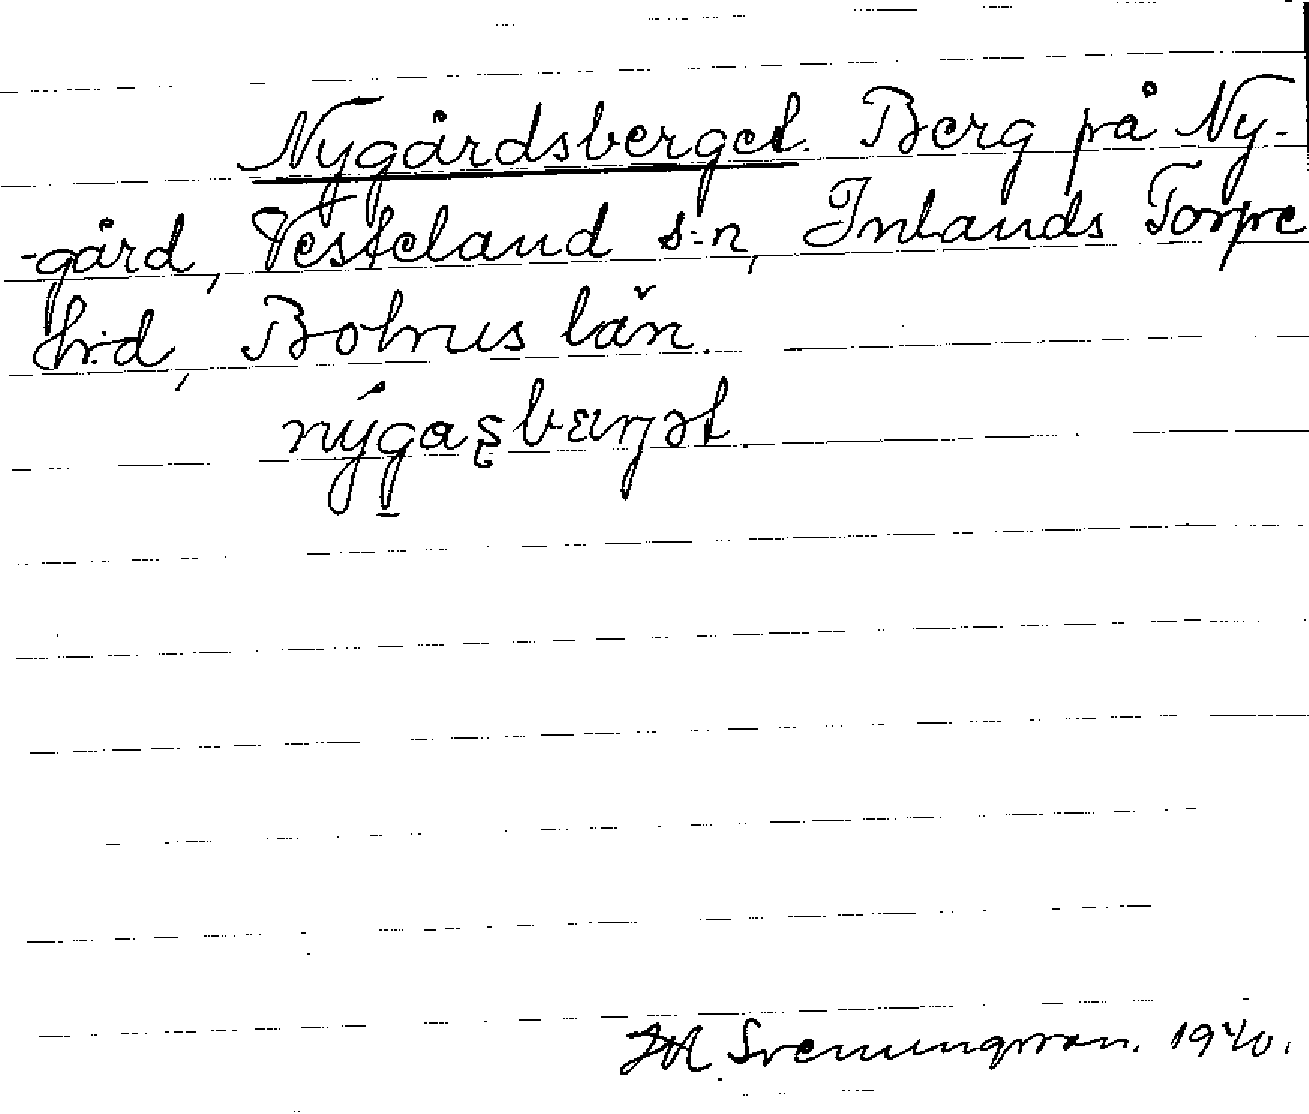 Nygårdsberget. Berg på Ny-
-gård, Vesteland s:n, Inlands Torpe
hrd, Bohus län.
Svenungsson. 1940.